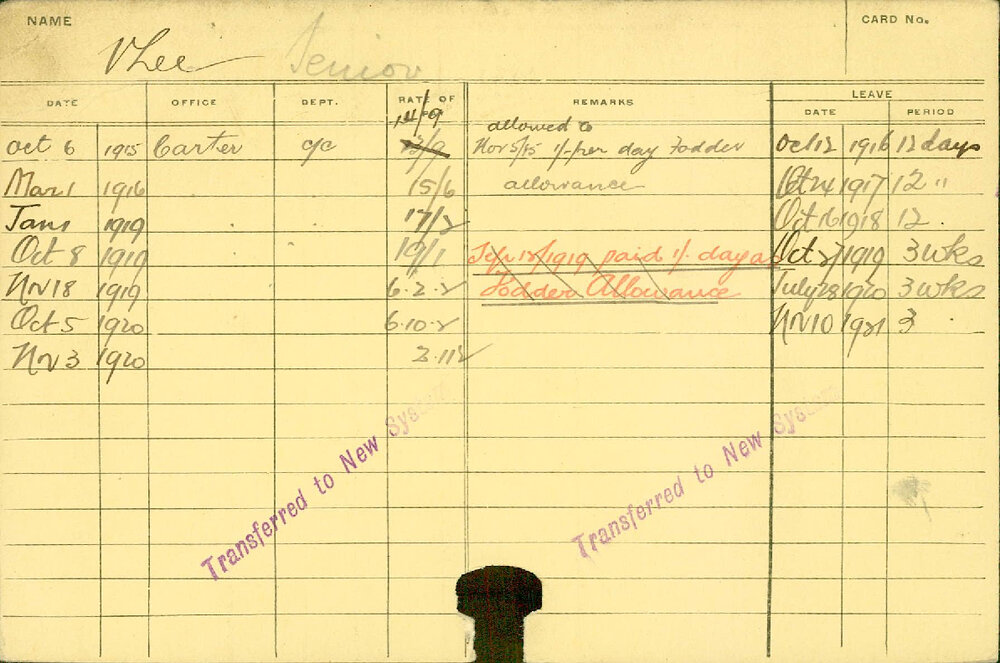 NAME
CARD No.
V Lee Senior
DATE OFFICE DEPT. RATE OF REMARKS LEAVE
DATE PERIOD
14/9
allowed to
Oct 6 1915 Carter c/c 13/9 Nov 5/15 1/- per day Fodder Oct 12 1916 12 days
Mar 1 1916 15/6 allowance Oct 24 1917 12 "
Jan 1 1919 17/2 Oct 16 1918 12
Oct 8 1919 19/1 Sep 12/1919 paid 1/- day a Oct 27 1919 3 wks
Nv 18 1919 6.2.2 Fodder Allowance July 28 1920 3 wks
Oct 5 1920 6.10.2 Nv 10 1921 3
Nv 3 1920 2.11
Transferred to New System
Transferred to New System